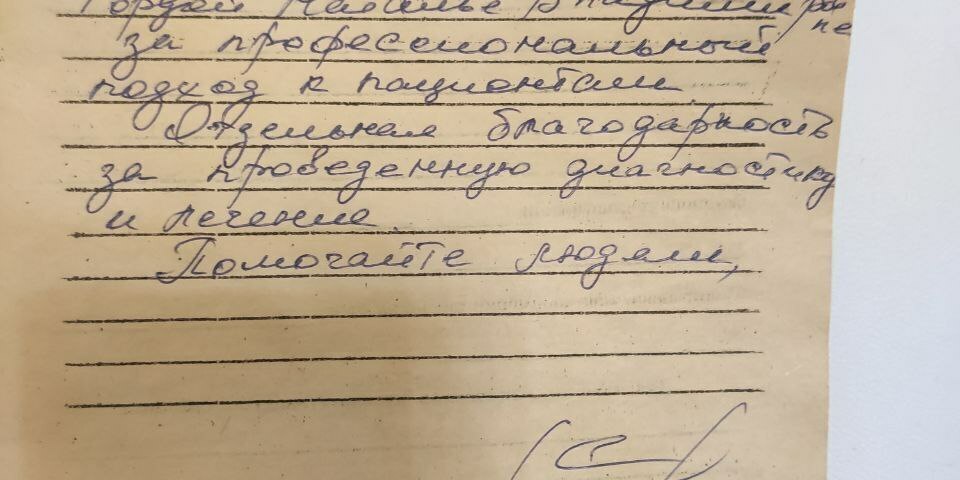 Наталье Владимировне
за профессиональный
подход к пациентам.
Отдельная благодарность
за проведенную диагностику
и лечение.
Помогайте людям,